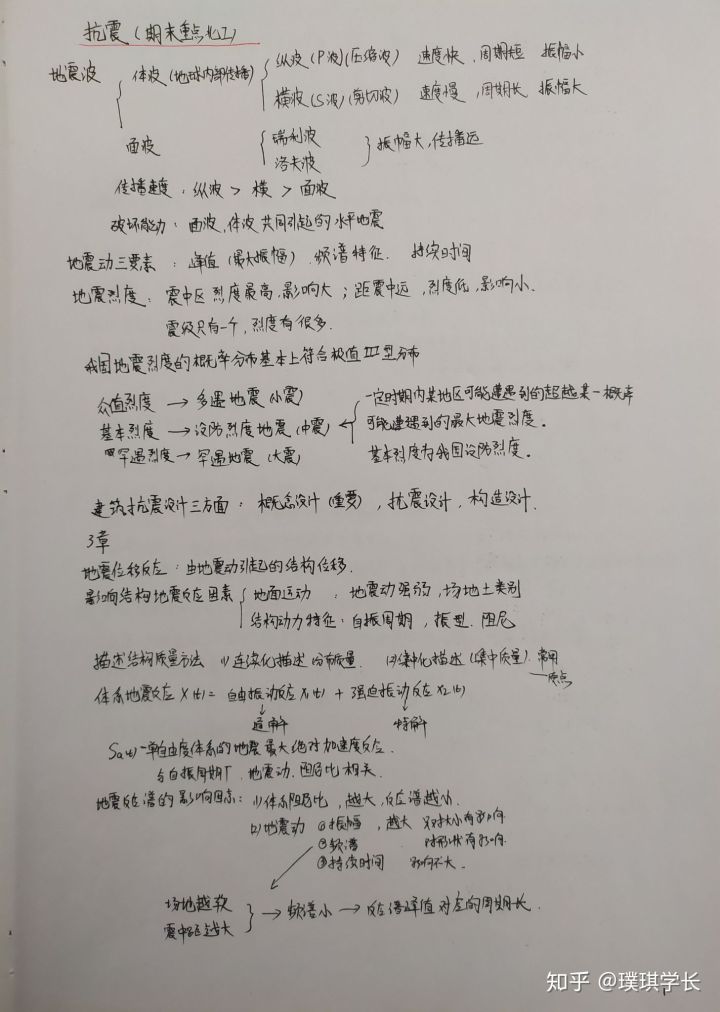 抗震(期末重点化工)
地震波 体波(地球内部传播) 纵波(P波)(压缩波) 速度快,周期短 振幅小
横波(S波)(剪切波) 速度慢,周期长 振幅大
面波 瑞利波
洛夫波 振幅大,传播远
传播速度:纵波 > 横 > 面波
破坏能力:面波,体波共同引起的水平地震
地震动三要素:峰值(最大振幅).频谱特征.持续时间
地震烈度:震中区烈度最高,影响大;距震中远,烈度低,影响小.
震级只有一个,烈度有很多.
我国地震烈度的概率分布基本上符合极值III型分布
众值烈度 → 多遇地震(小震)
基本烈度 → 设防烈度地震(中震) ← 一定时期内某地区可能遭遇到的超越某一概率
可能遭遇到的最大地震烈度。
罕遇烈度 → 罕遇地震(大震) 基本烈度为我国设防烈度。
建筑抗震设计三方面:概念设计(重要),抗震设计,构造设计.
3章
地震位移反应:由地震动引起的结构位移.
影响结构地震反应因素 地面运动:地震动强弱,场地土类别
结构动力特征:自振周期,振型.阻尼
描述结构质量方法 (1)连续化描述 分布质量. (2)集中化描述(集中质量).常用
质点
体系地震反应X(t)= 自由振动反应X₁(t) + 强迫振动反应X₂(t)
↓通解 ↓特解
Sa(t)-单自由度体系的地震最大绝对加速度反应.
与自振周期T,地震动.阻尼比相关.
地震反应谱的影响因素:(1)体系阻尼比,越大,反应谱越小.
(2)地震动 ①振幅,越大 对大小有影响
②频谱 对形状有影响.
③持续时间 影响不大.
场地越软
震中距越大 → 频谱小 → 反应谱峰值对应的周期长.
1
知乎 @璞琪学长